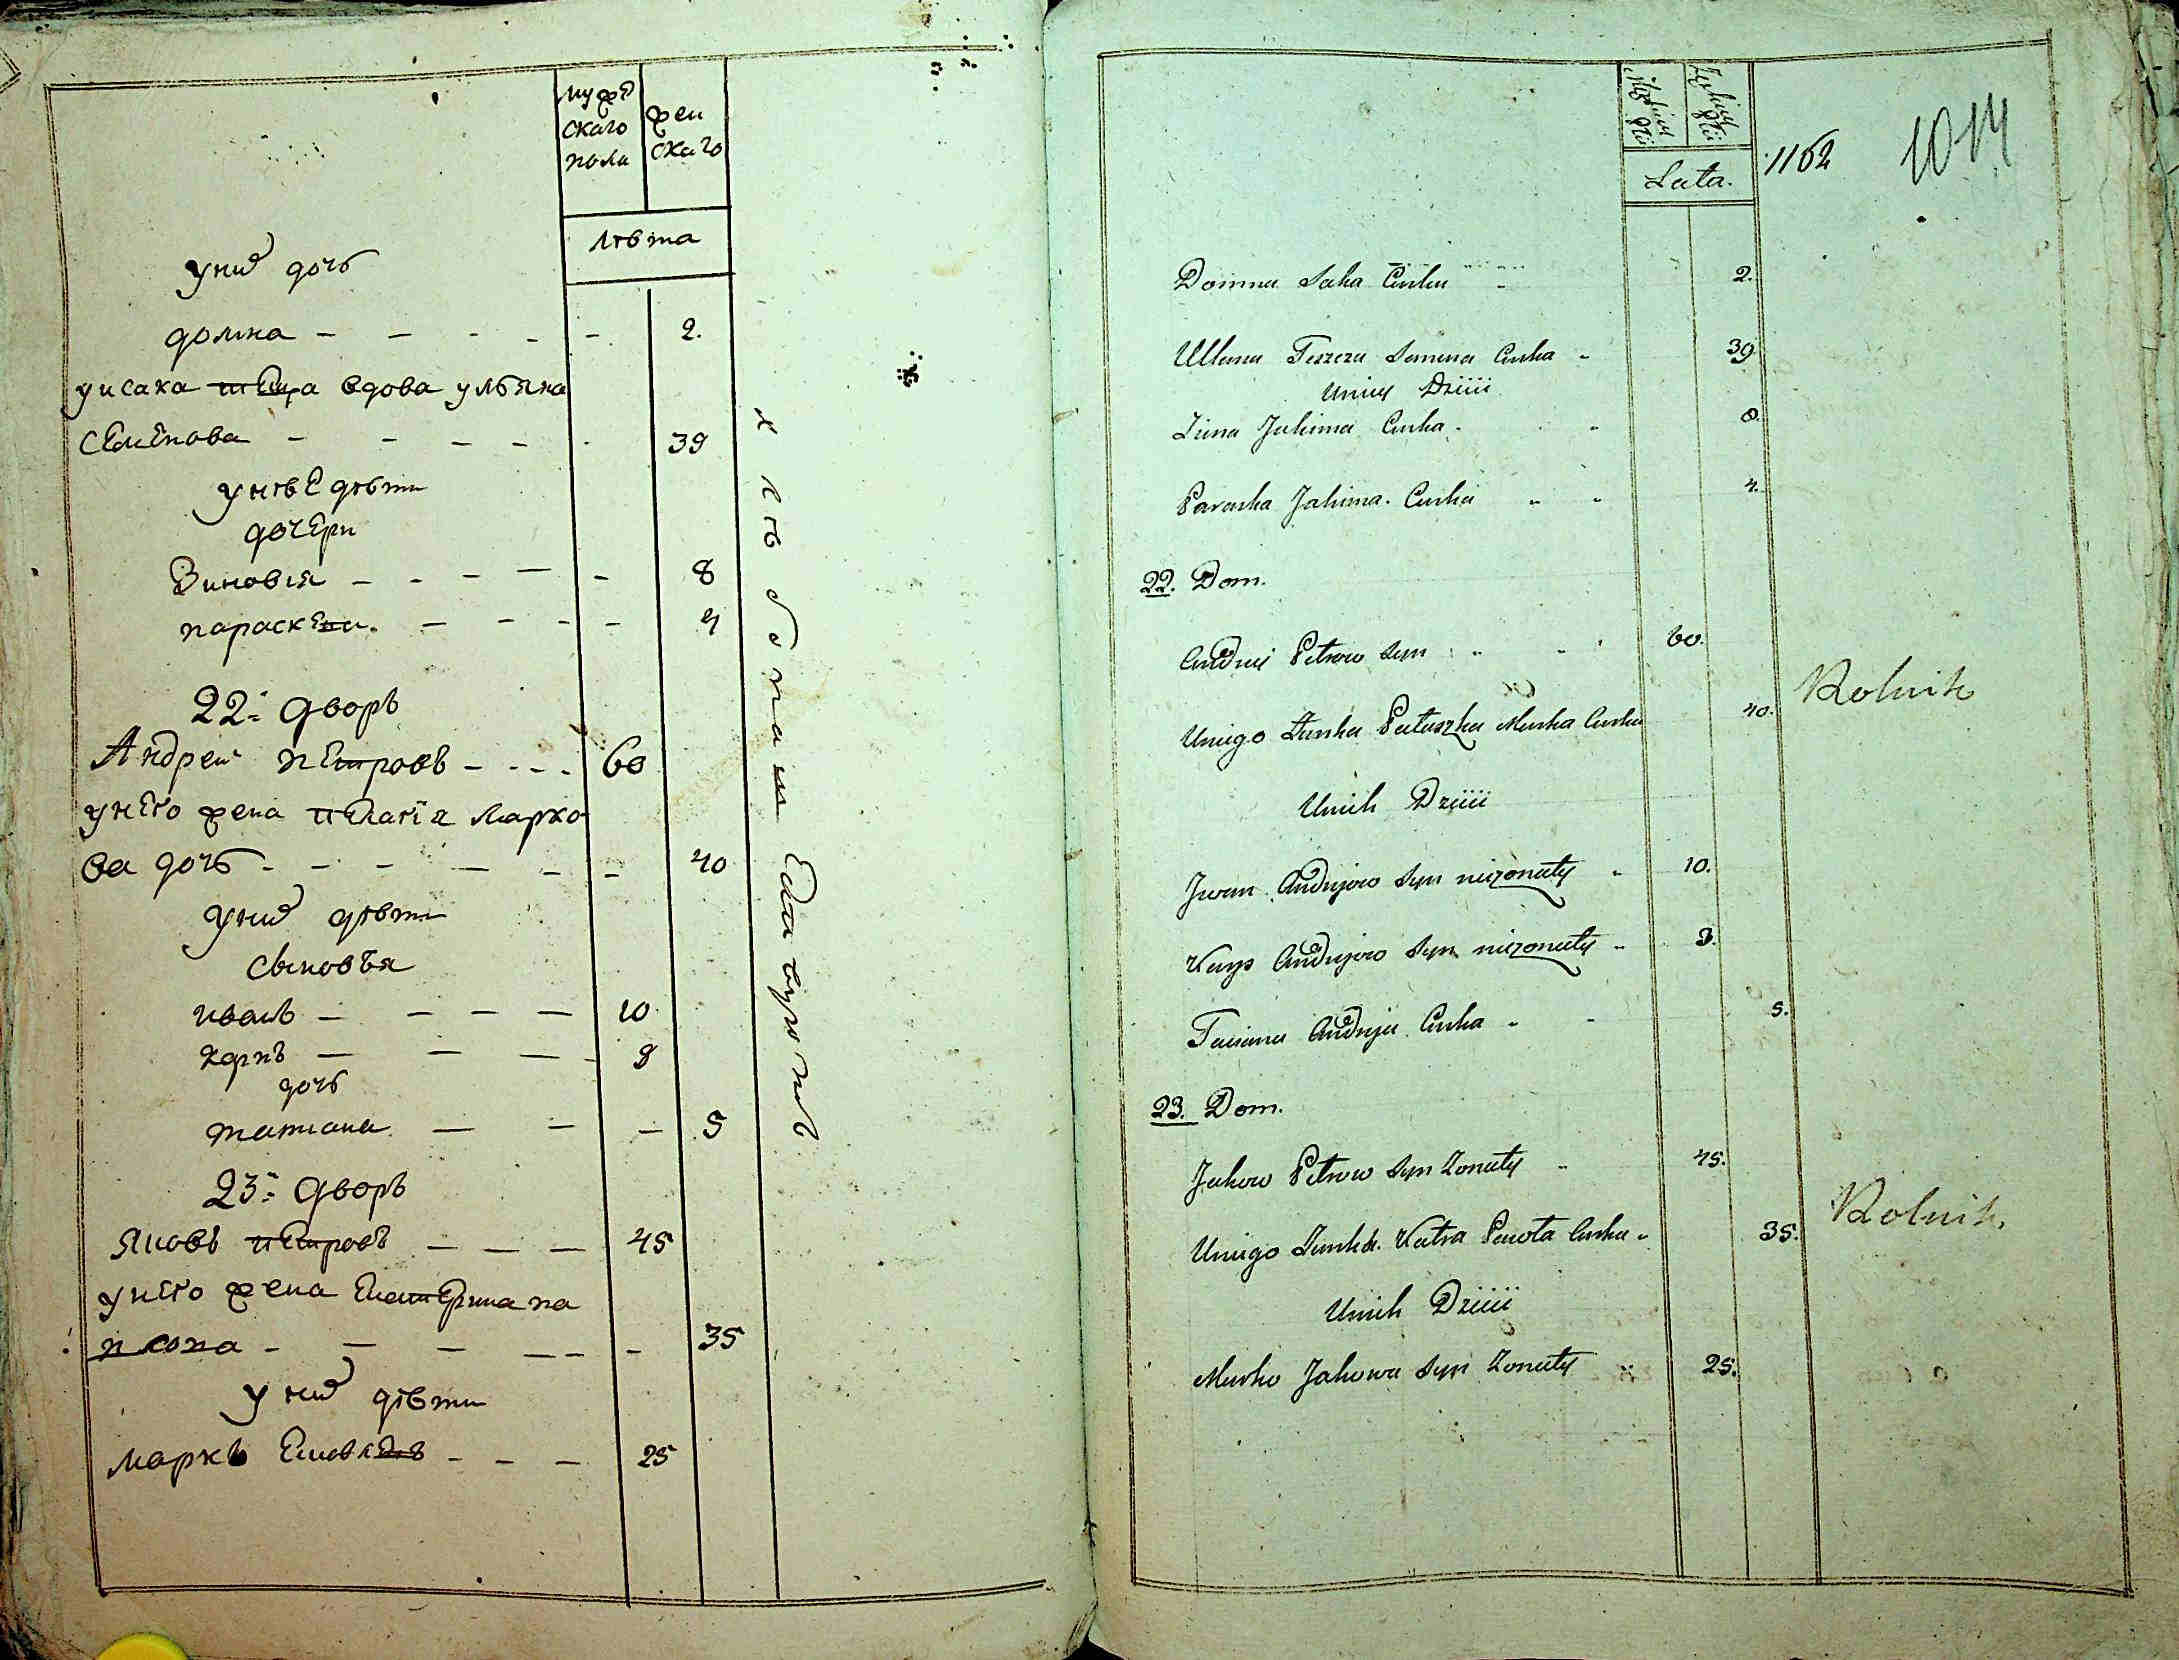 мужескаго пола
женскаго
лѣта
уних дочь
домна - - - - - 2.
уисака теща вдова ульяна
семенова - - - - - 39
унее дѣти
дочери
Зиновия - - - - - 8
параскеви. - - - - 4
22: дворъ
Андреи петровъ - - - . 60
унего жена пелагія марко
ва дочь - - - - - - 40
уних дѣти
сыновья
иванъ - - - - 10
карпъ - - - - 8
дочь
татиана - - - 5
23: дворъ
яковъ петровъ - - - 45
унего жена екатерина
- - - - - - 35
уних дѣти
маркъ - - - 25
хлѣбопашецъ
Lata.
1162
1014
Domna Saka Curka 2.
Ullana Teszcza Semena Curka 39
Uniey Dzieci
Zina Jakima Curka 8.
Paraska Jakima. Curka 4.
22. Dom.
Andrej Petrow Syn 60.
Uniego Zonka Palaszka Marka Curka 40.
Rolnik
Unich Dzieci
Jwan Andrejow Syn niezonaty 10.
Karp Andrejow Syn niezonaty 8.
Taciana Andreja Curka 5.
23. Dom.
Jakow Petrow Syn Zonaty 45.
Uniego Zonka. Katra Curka 35.
Rolnik.
Unich Dzieci
Marko Jakowa Syn Zonaty 25.